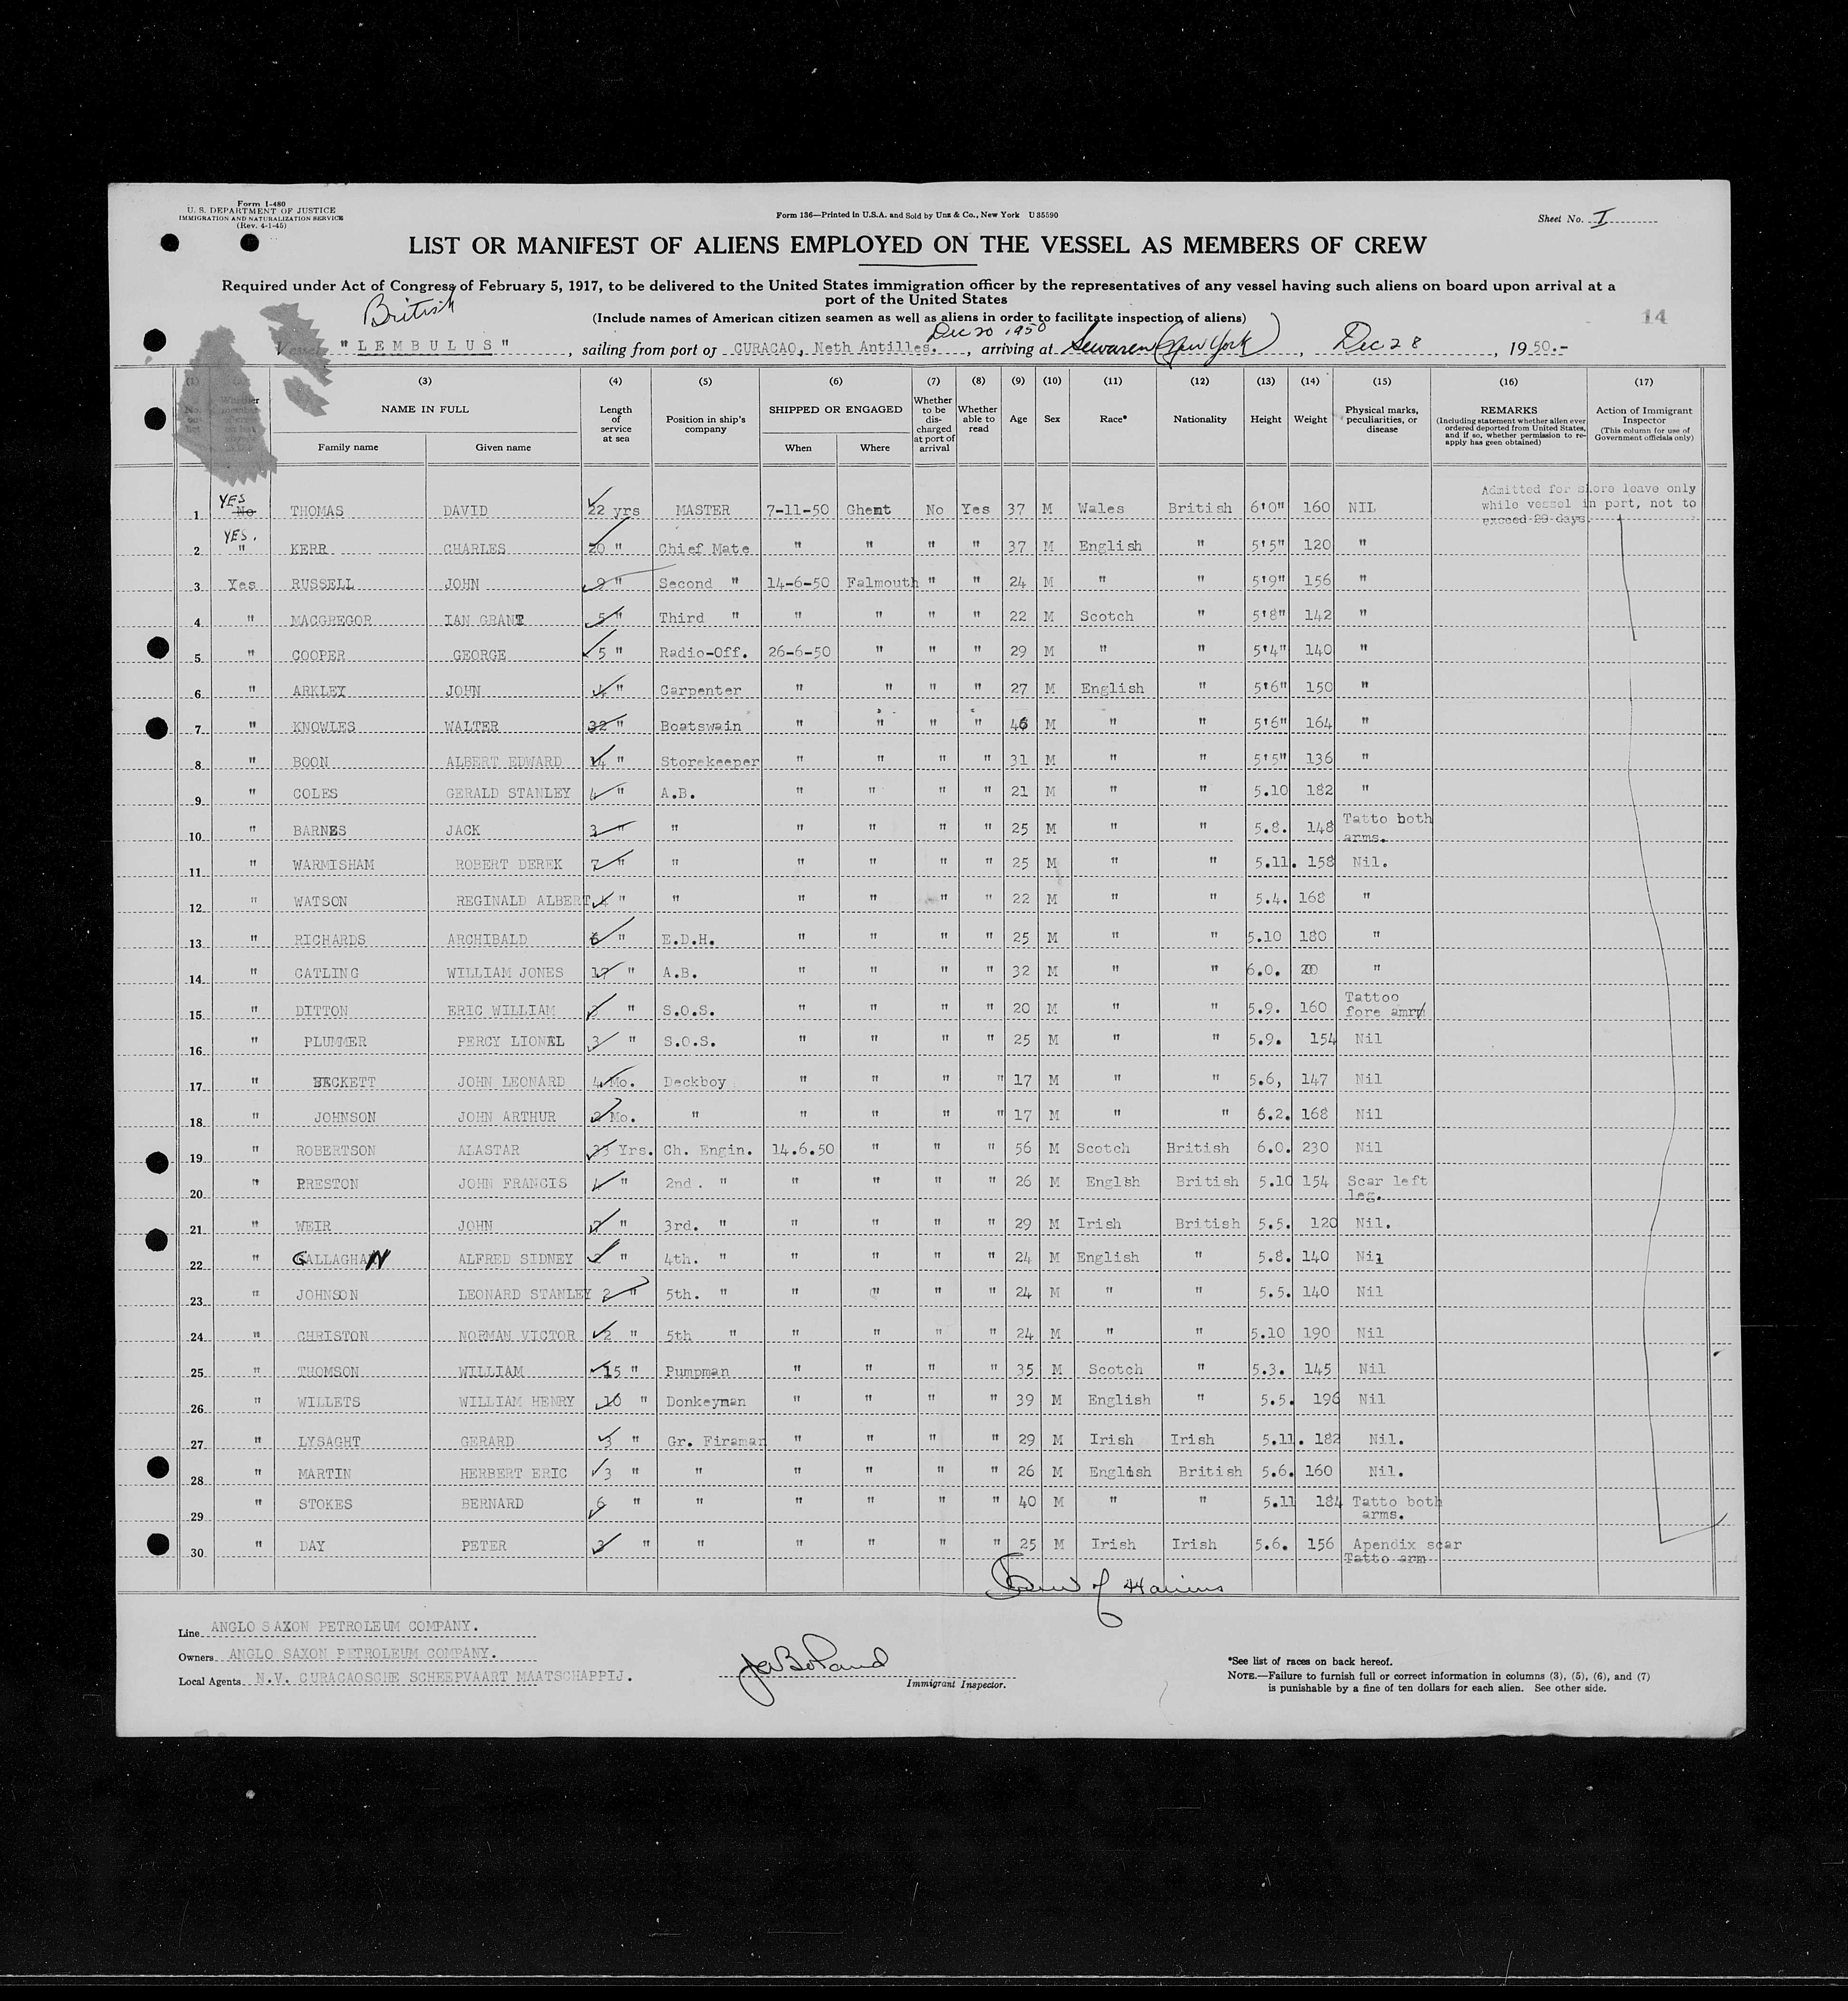 Form I-480
U. S. DEPARTMENT OF JUSTICE
IMMIGRATION AND NATURALIZATION SERVICE
(Rev. 4-1-45)
Form 136—Printed in U.S.A. and Sold by Unz & Co., New York U 35590
Sheet No. I
LIST OR MANIFEST OF ALIENS EMPLOYED ON THE VESSEL AS MEMBERS OF CREW
Required under Act of Congress of February 5, 1917, to be delivered to the United States immigration officer by the representatives of any vessel having such aliens on board upon arrival at a
port of the United States
British
(Include names of American citizen seamen as well as aliens in order to facilitate inspection of aliens)
14
Dec 20 1950
Vessel "LEMBULUS", sailing from port of CURACAO, Neth Antilles., arriving at Sewaren (New York), Dec 28, 1950.-
(1) (3) (4) (5) (6) (7) (8) (9) (10) (11) (12) (13) (14) (15) (16) (17)
NAME IN FULL Family name Given name Length of service at sea Position in ship's company SHIPPED OR ENGAGED When Where Whether to be discharged at port of arrival Whether able to read Age Sex Race* Nationality Height Weight Physical marks, peculiarities, or disease REMARKS (Including statement whether alien ever ordered deported from United States, and if so, whether permission to reapply has geen obtained) Action of Immigrant Inspector (This column for use of Government officials only)
Admitted for shore leave only
while vessel in port, not to
exceed 29 days.
1 YES No THOMAS DAVID 22 yrs MASTER 7-11-50 Ghent No Yes 37 M Wales British 6'0" 160 NIL
2 YES. " KERR CHARLES 20 " Chief Mate " " " " 37 M English " 5'5" 120 "
3 Yes RUSSELL JOHN 9 " Second " 14-6-50 Falmouth " " 24 M " " 5'9" 156 "
4 " MACGREGOR IAN GRANT 5 " Third " " " " " 22 M Scotch " 5'8" 142 "
5 " COOPER GEORGE 5 " Radio-Off. 26-6-50 " " " 29 M " " 5'4" 140 "
6 " ARKLEY JOHN 4 " Carpenter " " " " 27 M English " 5'6" 150 "
7 " KNOWLES WALTER 32 " Boatswain " " " " 46 M " " 5'6" 164 "
8 " BOON ALBERT EDWARD 14 " Storekeeper " " " " 31 M " " 5'5" 136 "
9 " COLES GERALD STANLEY 4 " A.B. " " " " 21 M " " 5.10 182 "
10 " BARNES JACK 3 " " " " " " 25 M " " 5.8. 148 Tatto both arms.
11 " WARMISHAM ROBERT DEREK 7 " " " " " " 25 M " " 5.11. 158 Nil.
12 " WATSON REGINALD ALBERT 4 " " " " " " 22 M " " 5.4. 168 "
13 " RICHARDS ARCHIBALD 6 " E.D.H. " " " " 25 M " " 5.10 180 "
14 " CATLING WILLIAM JONES 17 " A.B. " " " " 32 M " " 6.0. "
15 " DITTON ERIC WILLIAM 3 " S.O.S. " " " " 20 M " " 5.9. 160 Tattoo fore amr
16 " PLUMMER PERCY LIONEL 3 " S.O.S. " " " " 25 M " " 5.9. 154 Nil
17 " BECKETT JOHN LEONARD 4 Mo. Deckboy " " " " 17 M " " 5.6, 147 Nil
18 " JOHNSON JOHN ARTHUR 2 Mo. " " " " " 17 M " " 6.2. 168 Nil
19 " ROBERTSON ALASTAR 33 Yrs. Ch. Engin. 14.6.50 " " " 56 M Scotch British 6.0. 230 Nil
20 " PRESTON JOHN FRANCIS 4 " 2nd. " " " " " 26 M English British 5.10 154 Scar left leg.
21 " WEIR JOHN 7 " 3rd. " " " " " 29 M Irish British 5.5. 120 Nil.
22 " GALLAGHAN ALFRED SIDNEY 2 " 4th. " " " " " 24 M English " 5.8. 140 Nil
23 " JOHNSON LEONARD STANLEY 2 " 5th. " " " " " 24 M " " 5.5. 140 Nil
24 " CHRISTON NORMAN VICTOR 2 " 5th " " " " " 24 M " " 5.10 190 Nil
25 " THOMSON WILLIAM 15 " Pumpman " " " " 35 M Scotch " 5.3. 145 Nil
26 " WILLETS WILLIAM HENRY 10 " Donkeyman " " " " 39 M English " 5.5. 196 Nil
27 " LYSAGHT GERARD 3 " Gr. Fireman " " " " 29 M Irish Irish 5.11. 182 Nil.
28 " MARTIN HERBERT ERIC 3 " " " " " " 26 M English British 5.6. 160 Nil.
29 " STOKES BERNARD 6 " " " " " " 40 M " " 5.11 184 Tatto both arms.
30 " DAY PETER 3 " " " " " " 25 M Irish Irish 5.6. 156 Apendix scar Tatto arm
Crew of 44 aliens
Line ANGLO SAXON PETROLEUM COMPANY.
Owners ANGLO SAXON PETROLEUM COMPANY.
Local Agents N.V. CURACAOSCHE SCHEEPVAART MAATSCHAPPIJ.
JA Boland
Immigrant Inspector.
*See list of races on back hereof.
NOTE.—Failure to furnish full or correct information in columns (3), (5), (6), and (7)
is punishable by a fine of ten dollars for each alien. See other side.